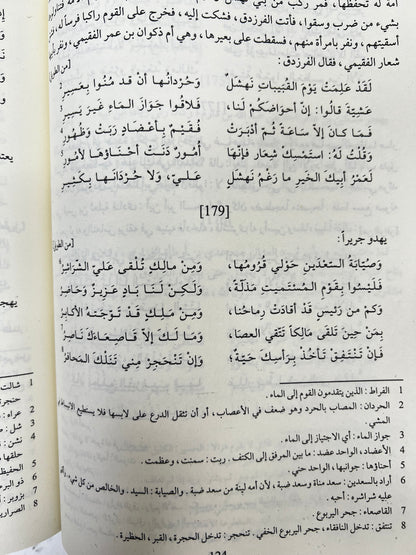 بشيء من ضرب وسقوا، فأتت الفرزدق، فشكت إليه، فخرج على القوم راكبا فرساً له
أسقيتهم، ونفر بامرأة منهم، فسقطت على بعيرها، وهي أم ذكوان بن عمر الفقيمي، ونفر
شعار الفقيمي، فقال الفرزدق:
[من الطويل]
لَقَدْ عَلِمَتْ يَوْمَ القُبَيباتِ نَهشَلٌ وَحُرْدانُها أن قَد مُنوا بِعَسِيرِ
عَشِيّةَ قالوا: إن أحواضَكُم لَنا، فَلاقَوا جَوازَ الماءِ غَيرَ يَسيرِ
فَما كانَ إلا ساعَةً ثُمّ أدْبَرَتْ فُقَيمٌ بأعْضادٍ رَبَتْ وَظُهورِ
وَقُلتُ لَهُ: استَمسِكْ شِعارُ فإنّها أُمُورٌ دَنَتْ أحْناؤها لأُمُورِ
لَعَمْرُ أبيكَ الخَيرِ ما رَغْمُ نَهشَلٍ عَليّ، وَلا حُرْدانِها بِكَثيرِ
[179]
يهجو جريراً:
[من الطويل]
وَصُيّابَةُ السّعْدَينِ حَوْلي قُرُومُها، وَمِنْ مالِكٍ تُلْقَى عَليّ الشّرَاشِرُ
فَلَيْسُوا بِقَوْمِ المُستَميتِ مَذَلّةً، وَلَكِنْ لَنا بادٍ عَزِيزٌ وَحاضِرُ
وَكم من رَئيسٍ قَدْ أقادَتْ رِماحُنا، وَمِنْ مَلِكٍ قَدْ تَوّجَتْهُ الأكابِرُ
بِمَنْ حِينَ تَلقَى مالِكاً تَتّقي العصَا، وَما لَكَ إلاّ قاصِعاءَكَ ناصِرُ
فَإن تَنْتَفِقْ تَأخُذْ بِرَأسِكَ حَيّةٌ؛ وَإن تَنْحَجِرْ مِني تَنَلكَ المَحافِرُ
1 الفراط: الذين يتقدمون القوم إلى الماء.
2 الحردان: المصاب بالحرد وهو ضعف في الأعصاب، أو أن تثقل الدرع على لابسها فلا يستطيع الانبساط في
المشي.
3 جواز الماء: أي الاجتياز إلى الماء.
4 الأعضاد، الواحد عضد: ما بين المرفق إلى الكتف. ربت: سمنت، وعظمت.
5 أحناؤها: جوانبها، الواحد حني.
6 أراد بالسعدين: سعد مناة وسعد ضبة، لأن أمه لينة من سعد ضبة. والصيابة: السيد. والخالص من كل شيء.
عليه شراشره: أحبه.
7 القاصعاء: جحر اليربوع.
8 تنتفق: تدخل النافقاء، جحر اليربوع الخفي. تنحجر: تدخل الحجرة، القبر، الحظيرة.